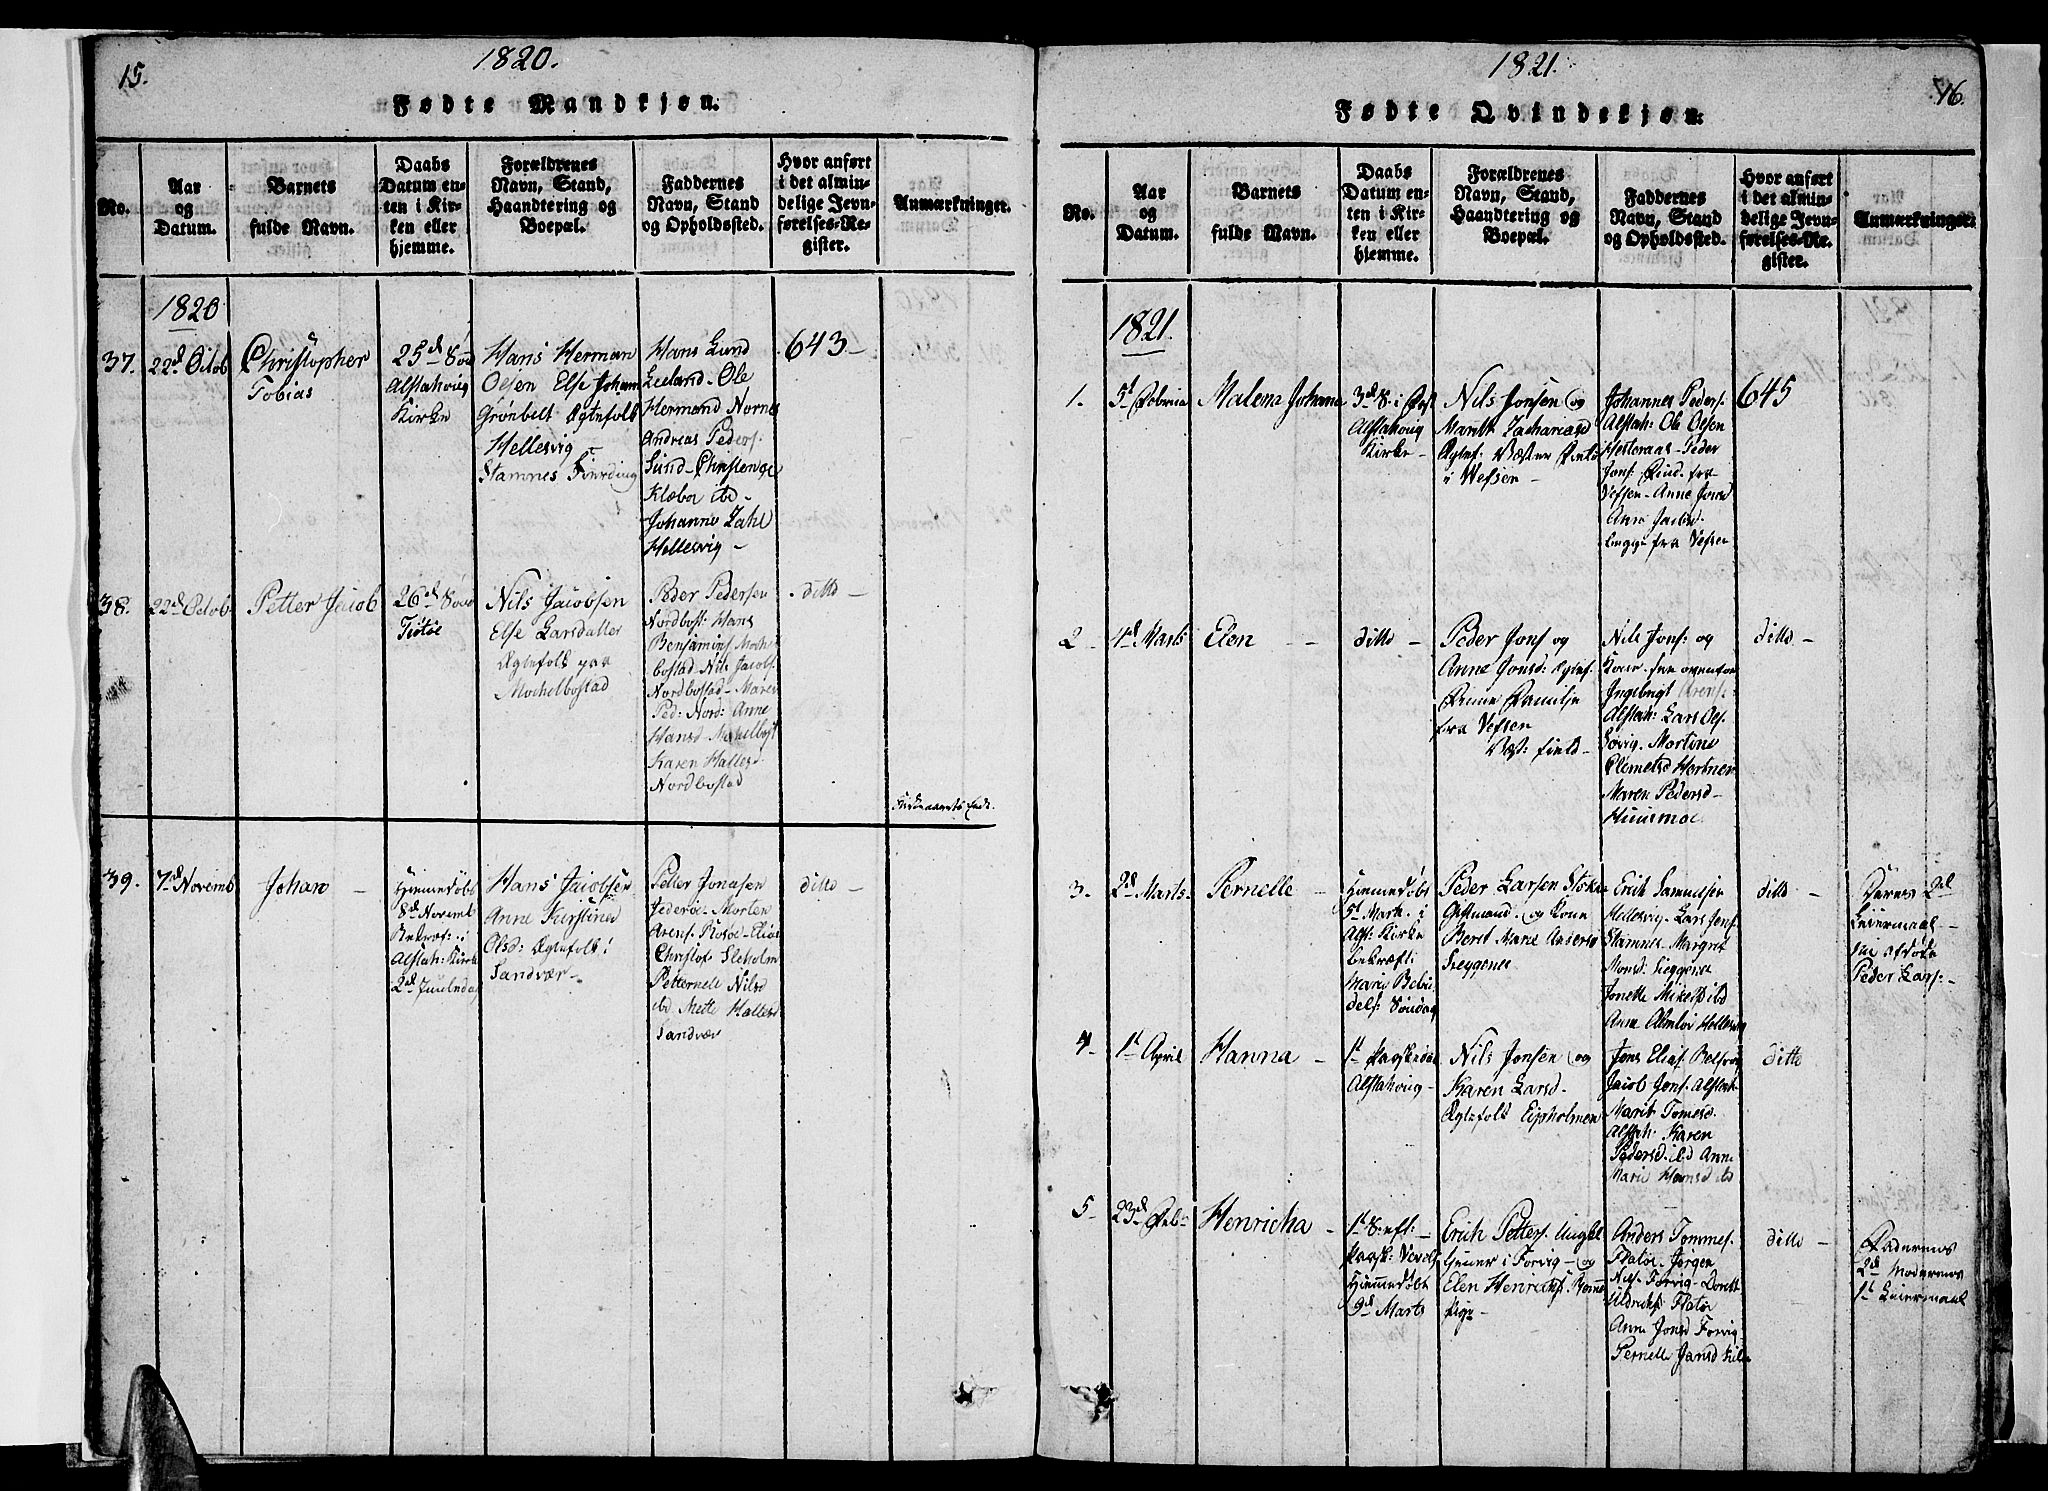 15.
1820.
Fødte Mandkjøn.
No.
Aar
og
Datum.
Barnets
fulde Navn.
Daabs
Datum en-
ten i Kir-
ken eller
hjemme.
Forældrenes
Navn, Stand,
Haandtering og
Boepæl.
Faddernes
Navn, Stand
og Opholdssted.
Hvor anført
i det almin-
delige Jevn-
førelses-Re-
gister.
Anmærkninger.
1820
37.
22d Octob
Christopher
Tobias
25d Søn
Alstahoug
Kirke
Hans Herman
Olsen Else Johan
Grønbelt Ægtefolk
Hellesvig
Stamnes Fierding
Hans Lund
Leeland. Ole
Hermand Nornes
Andreas Peders.
Sund- Christence
Klæboe ibd-
Johanne Zahl
Hellesvig-
643-
38.
22d Octob.
Petter Jacob
26d Sønd
Tiøtøe
Nils Jacobsen
Else Larsdatter
Ægtefolk paa
Mochelbostad
Peder Pedersen
Nordbost: Hans
Benjamins. Mochel
bostad- Nils Jacobs.
Nordbostad- Maren
Ped: Nord: Anne
Hansd Mochelbost
Karen Hallesd
Nordbostad
ditto -
Kirkeaarets Ende.
39.
7d Novemb
Johan -
Hiemmedøbt
8d Novemb
Alstah: Kirke
2d Juuledag
Hans Jacobsen
Anne Kirstine
Olsd: Ægtefolk i
Sandvær-
Petter Jonasen
Morten
Arens. Rosøe- Elias
Christofs Sleholm
Petternele Nilsd
ibd Mette Hallesd
Sandvær
ditto -
1821.
16.
Fødte Qvindekjøn.
No.
Aar
og
Datum.
Barnets
fulde Navn.
Daabs
Datum en-
ten i Kir-
ken eller
hjemme.
Forældrenes
Navn, Stand,
Haandtering og
Boepæl.
Faddernes
Navn, Stand
og Opholdssted.
Hvor anført
i det almin-
delige Jevn-
førelses-Re-
gister.
Anmærkninger.
1821.
1.
5t Febria
Malena Johana
3d S. i Fast
Alstahoug
Kirke -
Nils Jonsen og
Marith Zachariasd
Ægtef:
i Wefsen -
Johannes Peders.
Alstah: Ole Olsen
Hesteraas- Peder
Jons. fra
Vefsen- Anne Jonsd
Ane Jacobsd.
fra Vefsen
645
2
4d Marts
Elen -
ditto -
Peder Jons. og
Anne Jonsd: Ægtef.
Finne Familie
fra Vefsen
Nils Jons: og
Kone fra ovenfor
Ingebrigt Arens:
Alstah: Lars Ols.
Søvig. Martine
Clemetsd Hertnes
Maren Pedersd-
Huusmoe
ditto -
3.
2d Marts
Pernelle -
Hiemmedøbt
5t Mart. i
Als: Kirke
bekræft:
Marie Bebu
dels: Søndag
Peder Larsen Stokke
Giftmand. og Kone
Beret Marie Andersd
Leygenes
Erich Samuelsen
Hellesvig- Lars Jons.
Stamnes- Margret
Monsd: Leggenes
Jonette Mikels: ibd
Anne Almlov Hellesvig
ditto -
Deres 2d
Leiermaal -
Peder Lars: -
4-
1t April
Hanna -
1t Paaskedag
Alstahoug -
Nils Jonsen og
Karen Larsd-
Ægtefolk Eipholmen
Jens Elias. Belsvog
Jacob Jons. Alstah.
Marit Tomesd.
Alstah: Karen
Pedersd. ibd Anne
Marie Hansd ibd
ditto
5-
23d Feb-
Henricha -
1t S: eft:
Paask:
Hiemmedøbt
9d Marts
Erich Petters. Ungkl
tiener i Forvig- og
Elen Henrichs.
Pige-
Anders Tommes.
Flatøe- Jørgen
Nils. Forvig- Dorett
Uldrichs: Flatøe
Anne Jonsd Forvig
Pernelle Jansd
ditto -
Faderens
2d Moderens
1t Leiermaal